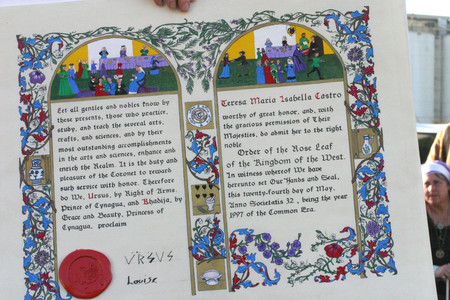 Let all gentles and nobles know by
these presents, those who practice,
study, and teach the several arts,
crafts, and sciences, and by their
most outstanding accomplishments
in the arts and sciences, enhance and
enrich the Realm. It is the duty and
pleasure of the Coronet to reward
such service with honor. Therefore
do We, Ursus, by Right of Arms,
Prince of Cynagua, and Rhadija, by
Grace and Beauty, Princess of
Cynagua, proclaim
URSUS
Louise
Teresa Maria Isabella Castro
worthy of great honor, and, with
the gracious permission of Their
Majesties, do admit her to the right
noble
Order of the Rose Leaf
of the Kingdom of the West.
In witness whereof We have
hereunto set Our Hands and Seal,
this twenty-fourth day of May,
Anno Societatis 32, being the year
1997 of the Common Era.